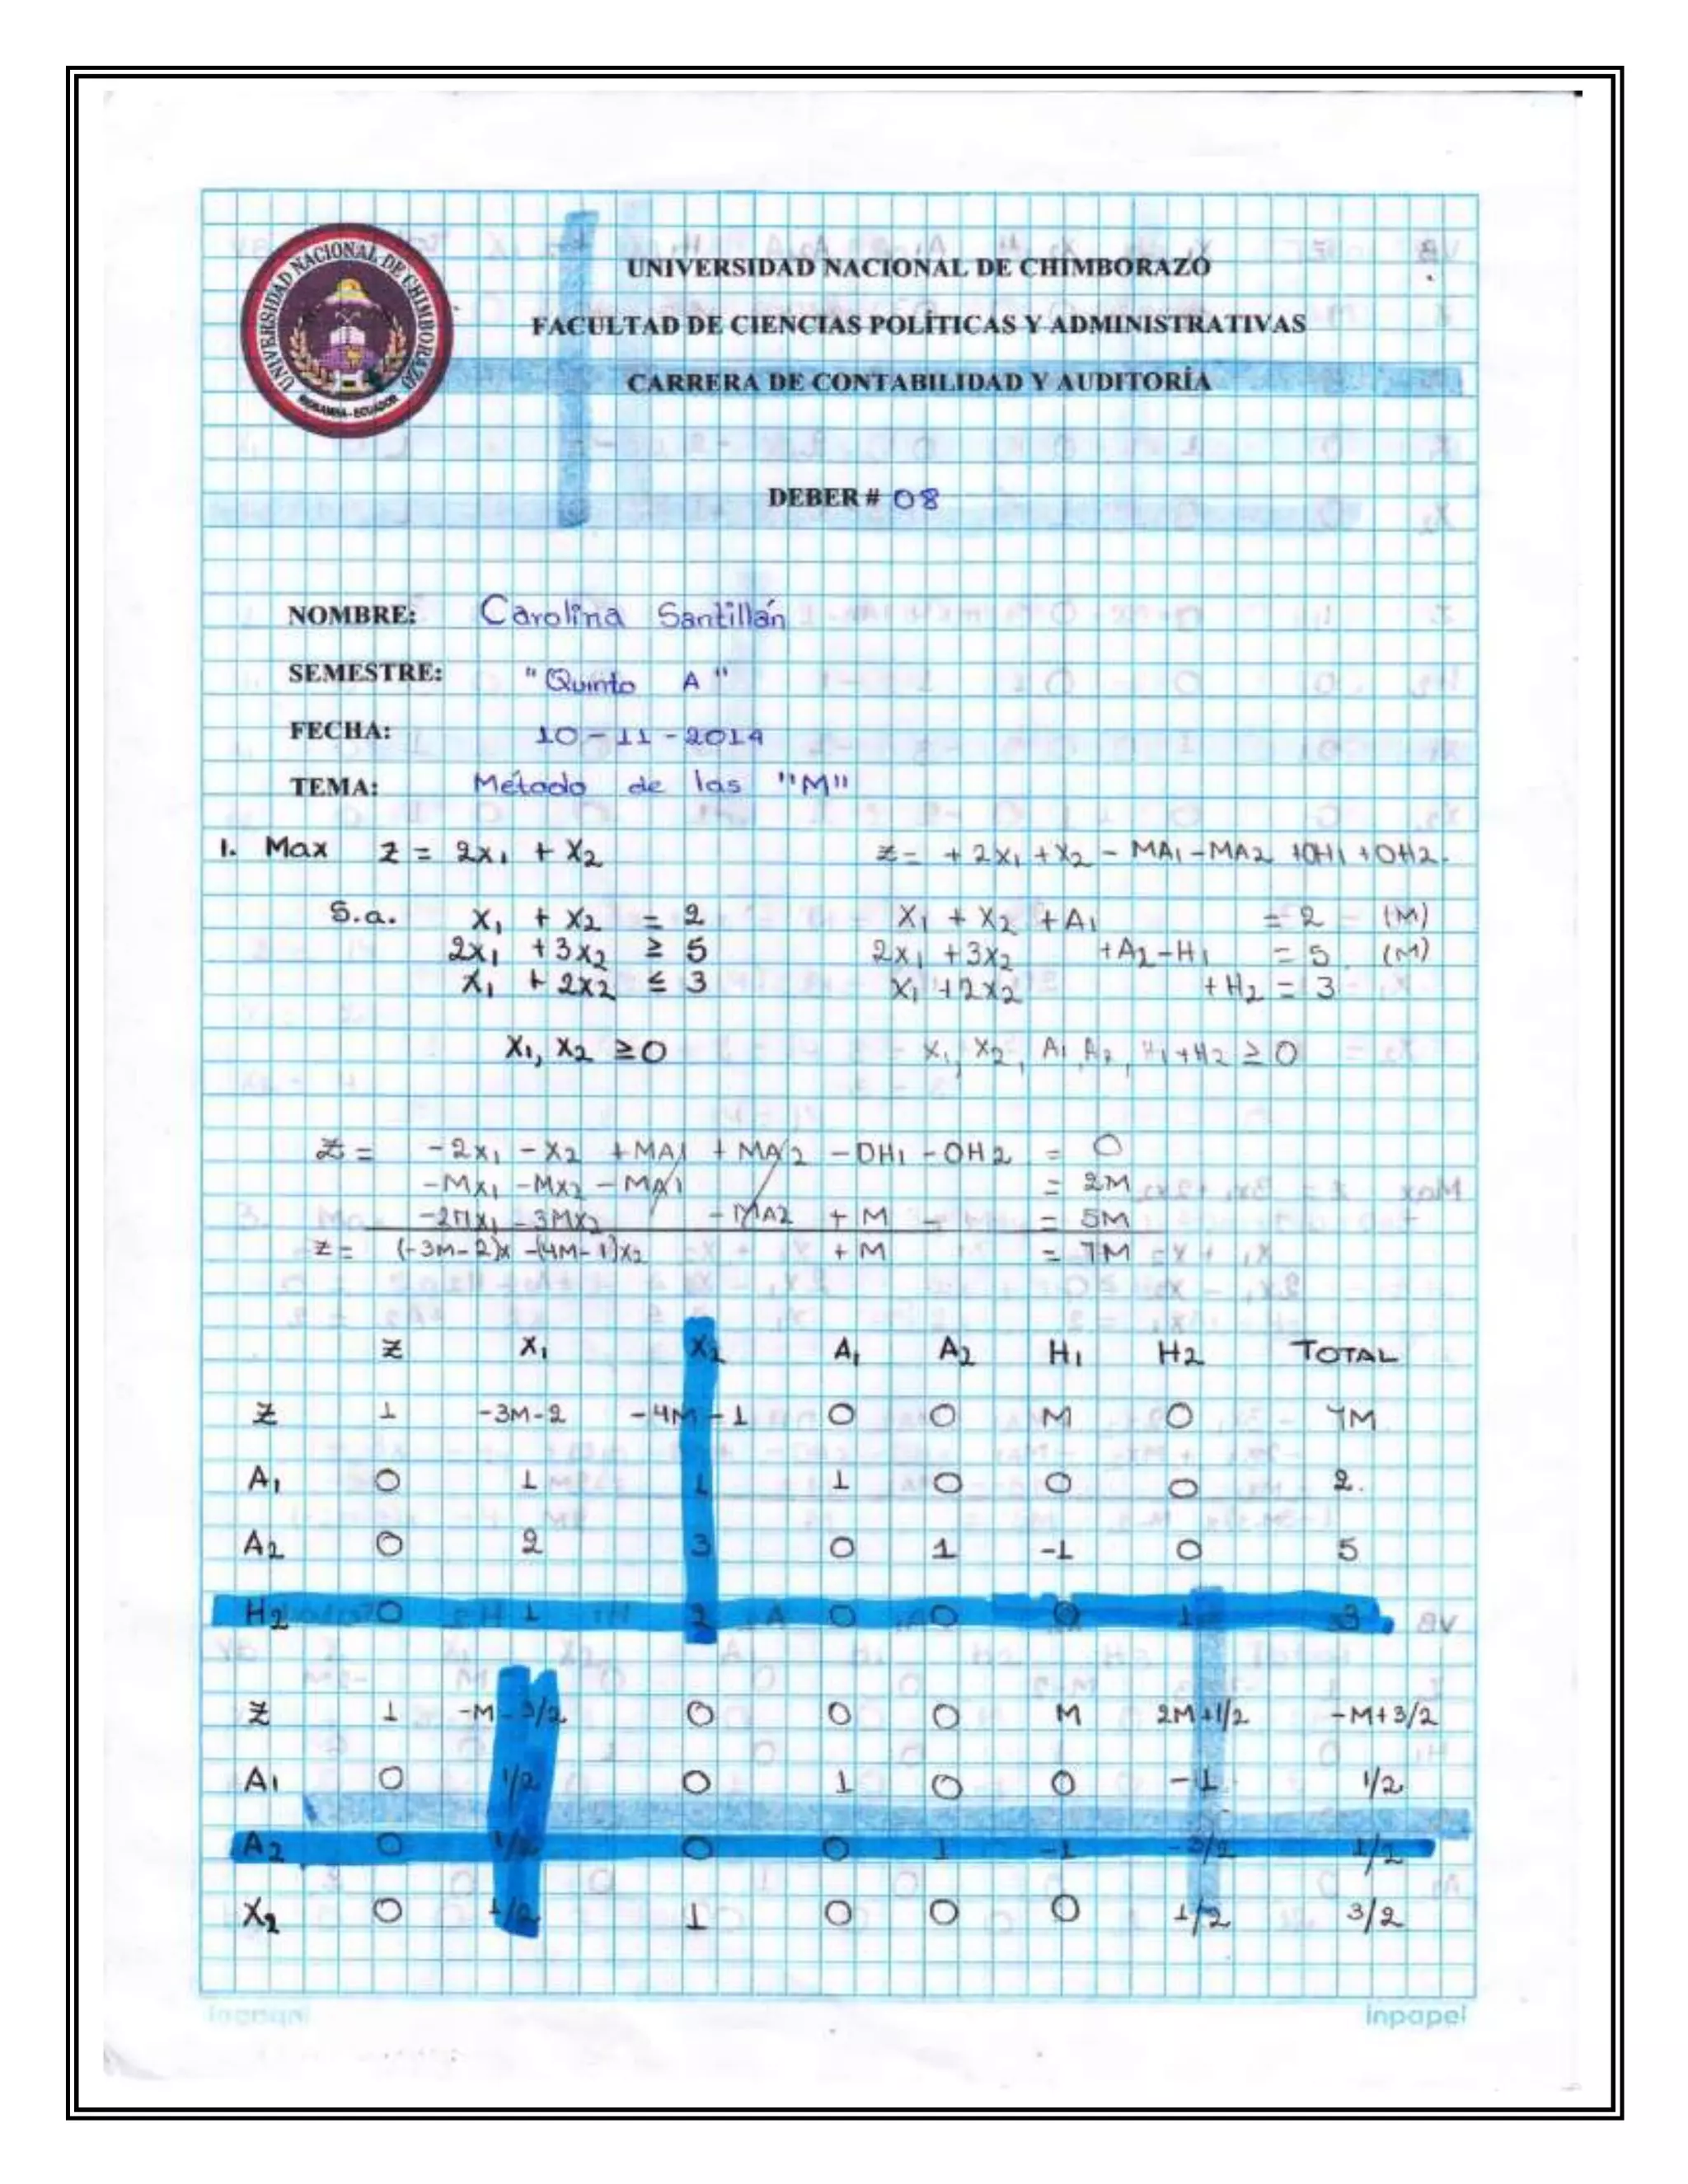 UNIVERSIDAD NACIONAL DE CHIMBORAZO
RIOBAMBA - ECUADOR
UNIVERSIDAD NACIONAL DE CHIMBORAZO
FACULTAD DE CIENCIAS POLÍTICAS Y ADMINISTRATIVAS
CARRERA DE CONTABILIDAD Y AUDITORÍA
DEBER # 08
NOMBRE: Carolina Santillán
SEMESTRE: "Quinto A"
FECHA: 10-11-2014
TEMA: Método de las "M"
1. Max z = 2x₁ + x₂ z = +2x₁ + x₂ - MA₁ - MA2 +0H₁ +0H2.
S.a. x₁ + x₂ = 2 x₁ + x₂ + A₁ = 2 (M)
2x₁ + 3x₂ ≥ 5 2x₁ + 3x₂ + A₂ - H₁ = 5. (M)
x₁ + 2x₂ ≤ 3 x₁ + 2x₂ + H₂ = 3
x₁, x₂ ≥ 0 x₁, x₂, A₁, A₂, H₁ + H2 ≥ 0
z = -2x₁ - x₂ + MA1 + MA2 - 0H₁ - 0H2 = 0
-Mx₁ - Mx₂ - MA1 = 2M
-2Mx₁ - 3Mx₂ - MA2 + M = 5M
z = (-3M-2)x -(4M-1)x₂ + M = 7M
Z X₁ X₂ A₁ A₂ H₁ H2 TOTAL
Z 1 -3M-2 -4M-1 0 0 M 0 7M
A₁ 0 1 1 1 0 0 0 2.
A2 0 2 3 0 1 -1 0 5
H2 0 1 2 0 0 0 1 3
Z 1 -M-3/2 0 0 0 M 2M+1/2 -M+3/2
A1 0 1/2 0 1 0 0 -1 1/2
A2 0 1/2 0 0 1 -1 -3/2 1/2
X₂ 0 1/2 1 0 0 0 1/2 3/2
inpapel